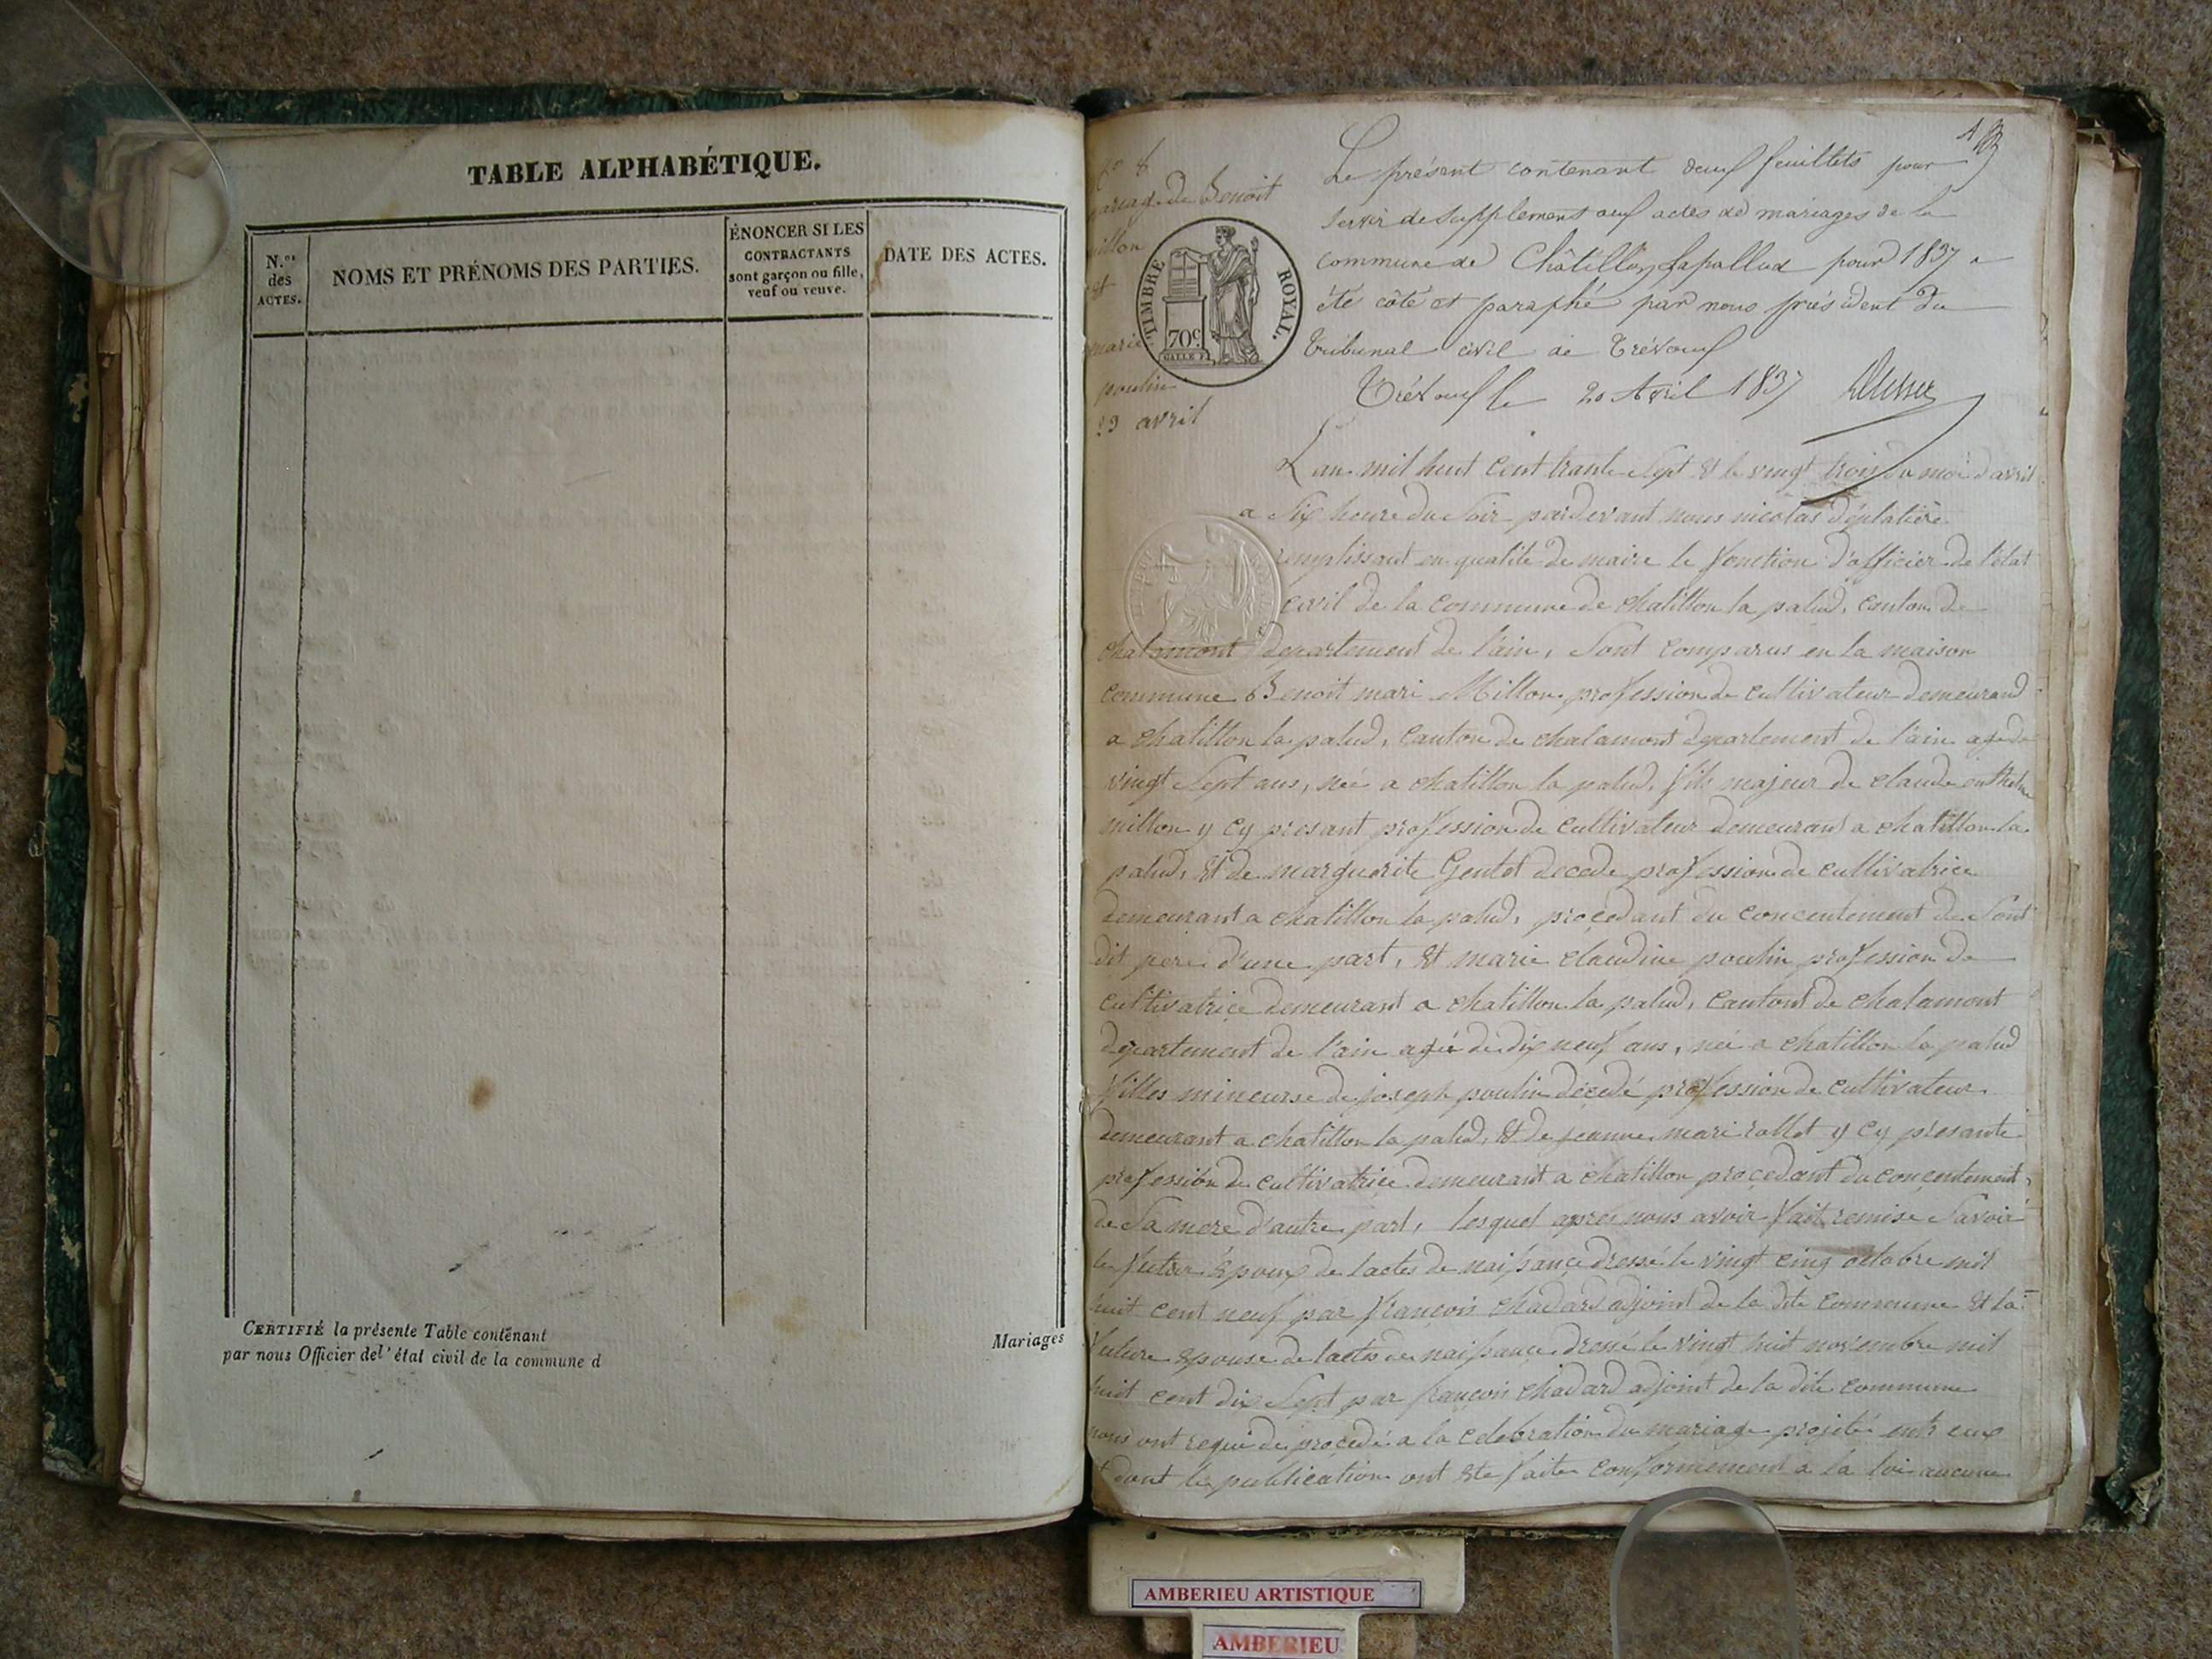 TABLE ALPHABÉTIQUE.
N.os
des
ACTES.
NOMS ET PRÉNOMS DES PARTIES.
ÉNONCER SI LES
CONTRACTANTS
sont garçon ou fille,
veuf ou veuve.
DATE DES ACTES.
CERTIFIÉ la présente Table contenant
Mariages
par nous Officier del'état civil de la commune d
8
mariage de Benoit
millon
et
marie
poulin
23 avril
TIMBRE ROYAL.
70c
Le présent contenant deux feuillets pour
servir de supplement aux actes de mariages de la
commune de Châtillon Lapallud pour 1837 a
été côté et paraphé par nous président du
Tribunal civil de Trévoux
Trévoux le 20 Avril 1837
L'an mil huit cent trante sept et le vingt trois du moi d'avril
a six heure du soir pardevant nous nicolas déplatière
remplissant en qualité de maire le fonction d'officier de l'état
civil de la commune de chatillon la palud, canton de
chalamont departement de l'ain, sont comparus en la maison
commune Benoit mari Millon profession de cultivateur demeurand
a chatillon la palud, canton de chalamont departement de l'ain agé de
vingt sept ans, née a chatillon la palud, fils majeur de claude
millon y cy presant profession de cultivateur demeurant a chatillon la
palud, et de marguerite Gentet decede profession de cultivatrice
demeurant a chatillon la palud, procedant du concentement de sont
dit pere d'une part, et marie claudine poulin profession de
cultivatrice demeurant a chatillon la palud, cantont de chalamont
departement de l'ain agée de dix neuf ans, née a chatillon la palud
filles mineurse de joseph poulin décedé profession de cultivateur
demeurant a chatillon la palud, et de jeanne mari rollet y cy présante
profession de cultivatrice demeurant a chatillon procedant du concentement
de sa mere d'autre part, lesquel apres nous avoir fait remise savoir
le futur epoux de l'actes de naissance dressé le vingt cinq octobre mil
huit cent neuf par francois chadard adjoint de la dite commune et la
future epouse de l'actes de naissance dressé le vingt huit novembre mil
huit cent dix sept par françois chadard adjoint de la dite commune
nous ont requi de procedé a la celebration du mariage projeté entr eux
et dont les publication ont ete faite conformement a la loi aucune
AMBERIEU ARTISTIQUE
AMBERIEU